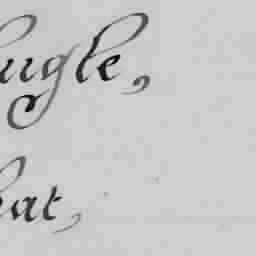 ugle,
hat,